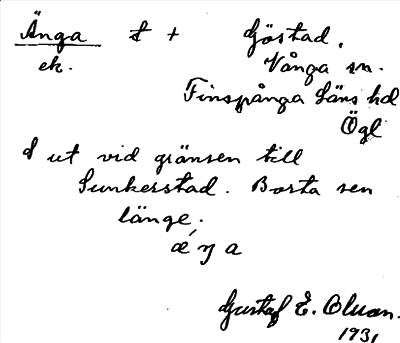 Änga t + Göstad.
ek. Vånga sn.
Finspånga läns hd
Ögl
t ut vid gränsen till
Sunkerstad. Borta sen
länge.
æ´ŋa
Gustaf E. Olsson.
1931